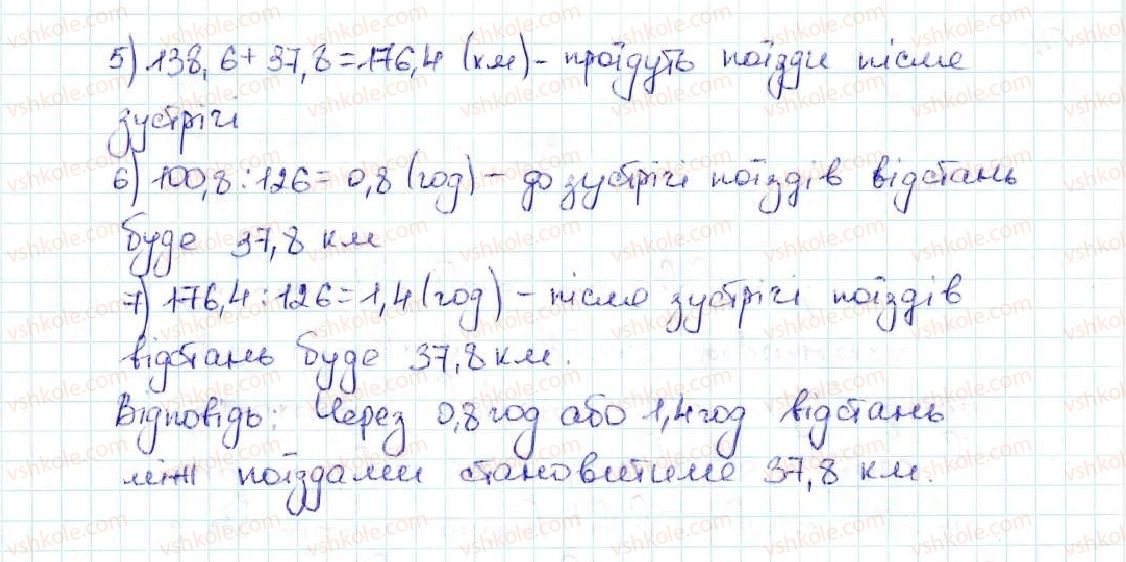 5) 138,6+37,8=176,4 (км) - пройдуть поїзди після
зустрічі
6) 100,8:126=0,8 (год) - до зустрічі поїздів відстань
буде 37,8 км
7) 176,4:126=1,4 (год) - після зустрічі поїздів
відстань буде 37,8 км.
Відповідь: Через 0,8 год або 1,4 год відстань
між поїздами становитиме 37,8 км.
vshkole.com